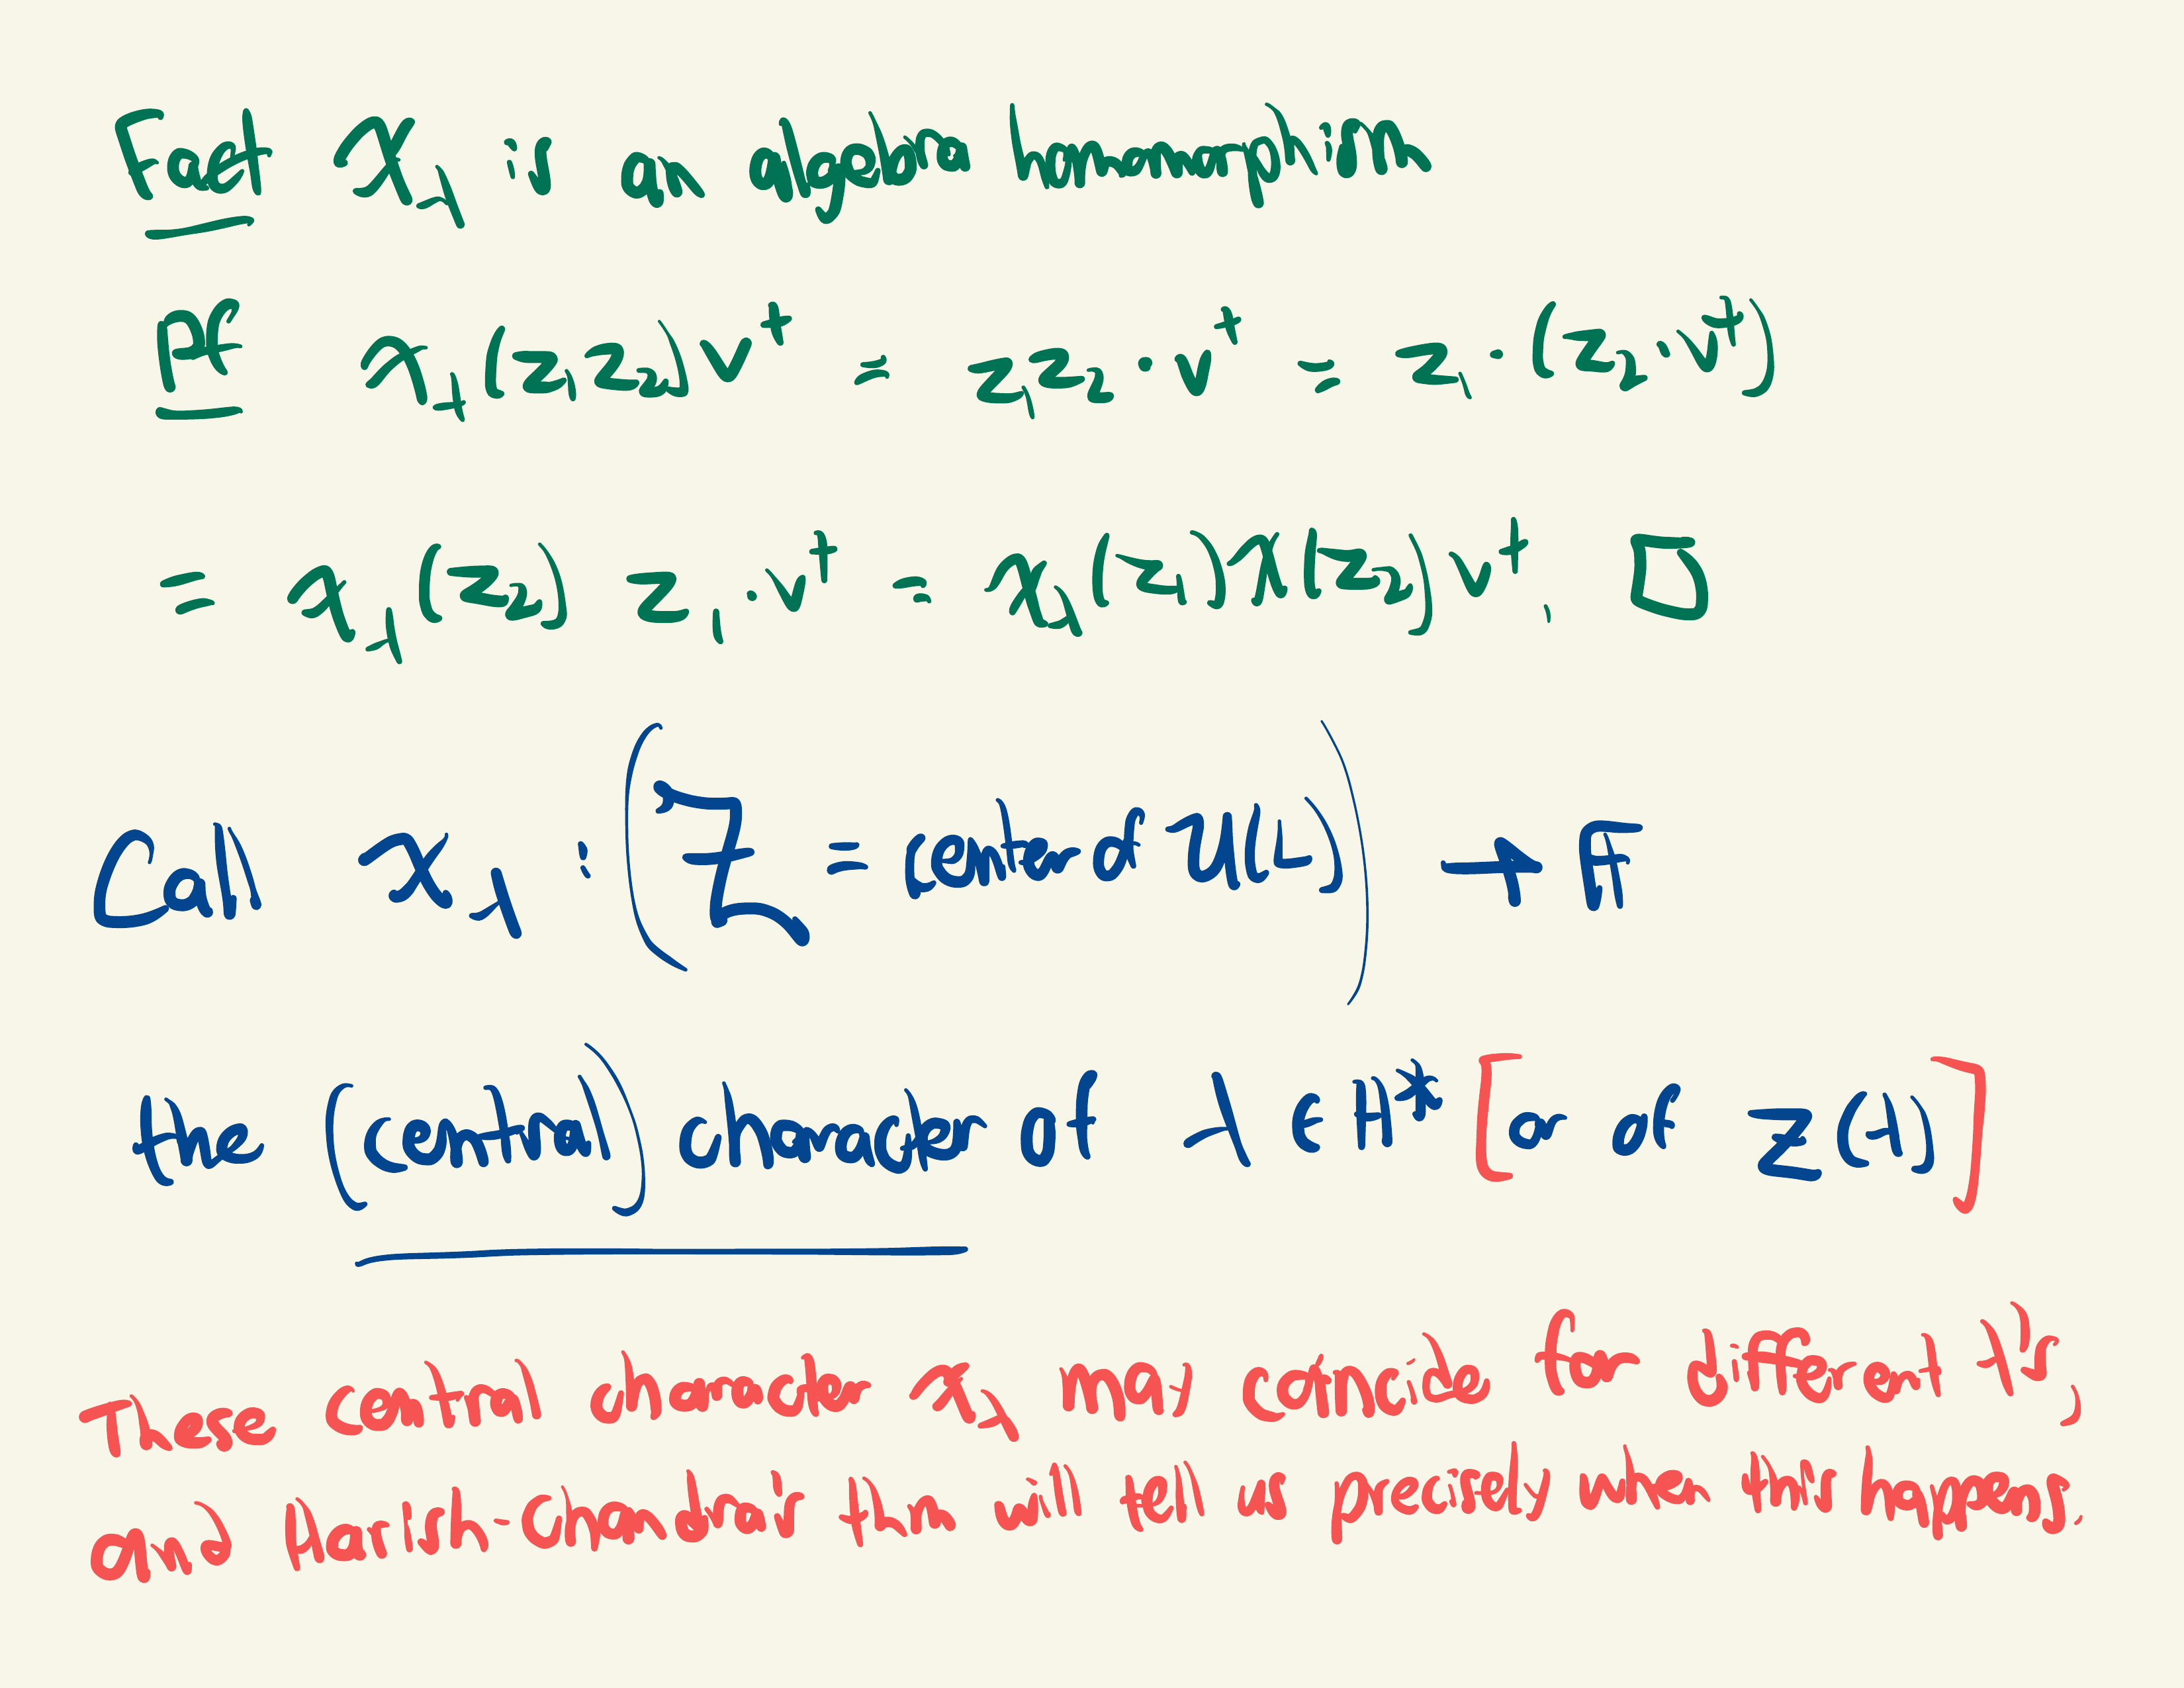 Fact χ_λ is an algebra homomorphism
Pf χ_λ(z₁z₂)v⁺ = z₁z₂·v⁺ = z₁·(z₂·v⁺)
= χ_λ(z₂) z₁·v⁺ = χ_λ(z₁)χ(z₂)v⁺. □
Call χ_λ : (Z = center of U(L)) → F
the (central) character of λ ∈ H* [or of Z(λ)]
These central character χ_λ may coincide for different λ's,
and Harish-Chandra's thm will tell us precisely when this happens.